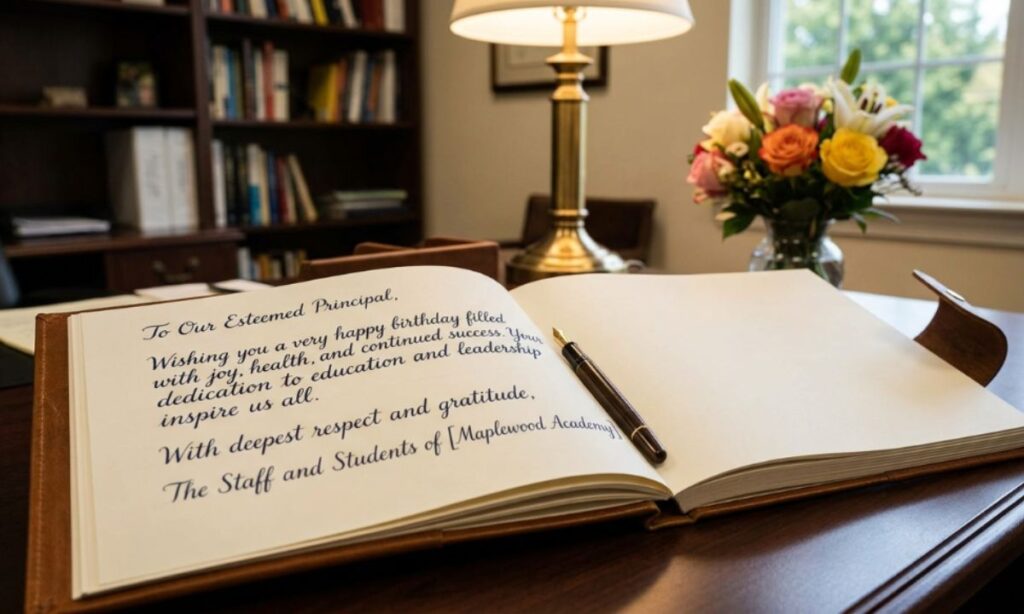 To Our Esteemed Principal,
Wishing you a very happy birthday filled
with joy, health, and continued success. Your
dedication to education and leadership
inspire us all.
With deepest respect and gratitude,
The Staff and Students of [Maplewood Academy]